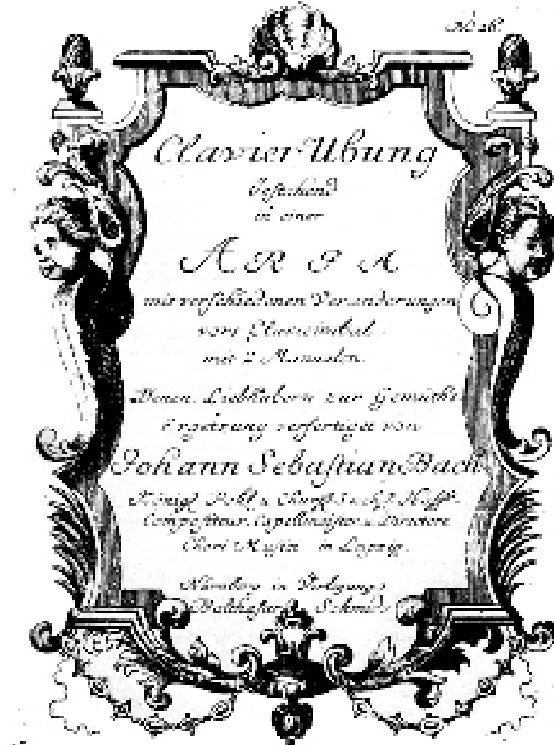 Clavier Ubung
bestehend
in einer
ARIA
mit verschiedenen Veraenderungen
vors Clavicimbal
mit 2 Manualen.
Denen Liebhabern zur Gemüths-
Ergetzung verfertiget von
Johann Sebastian Bach
Königl. Pohl. u. Churfl. Sæchs. Hoff-
Compositeur, Capellmeister, u. Directore
Chori Musici in Leipzig.
Nürnberg in Verlegung
Balthasar Schmids